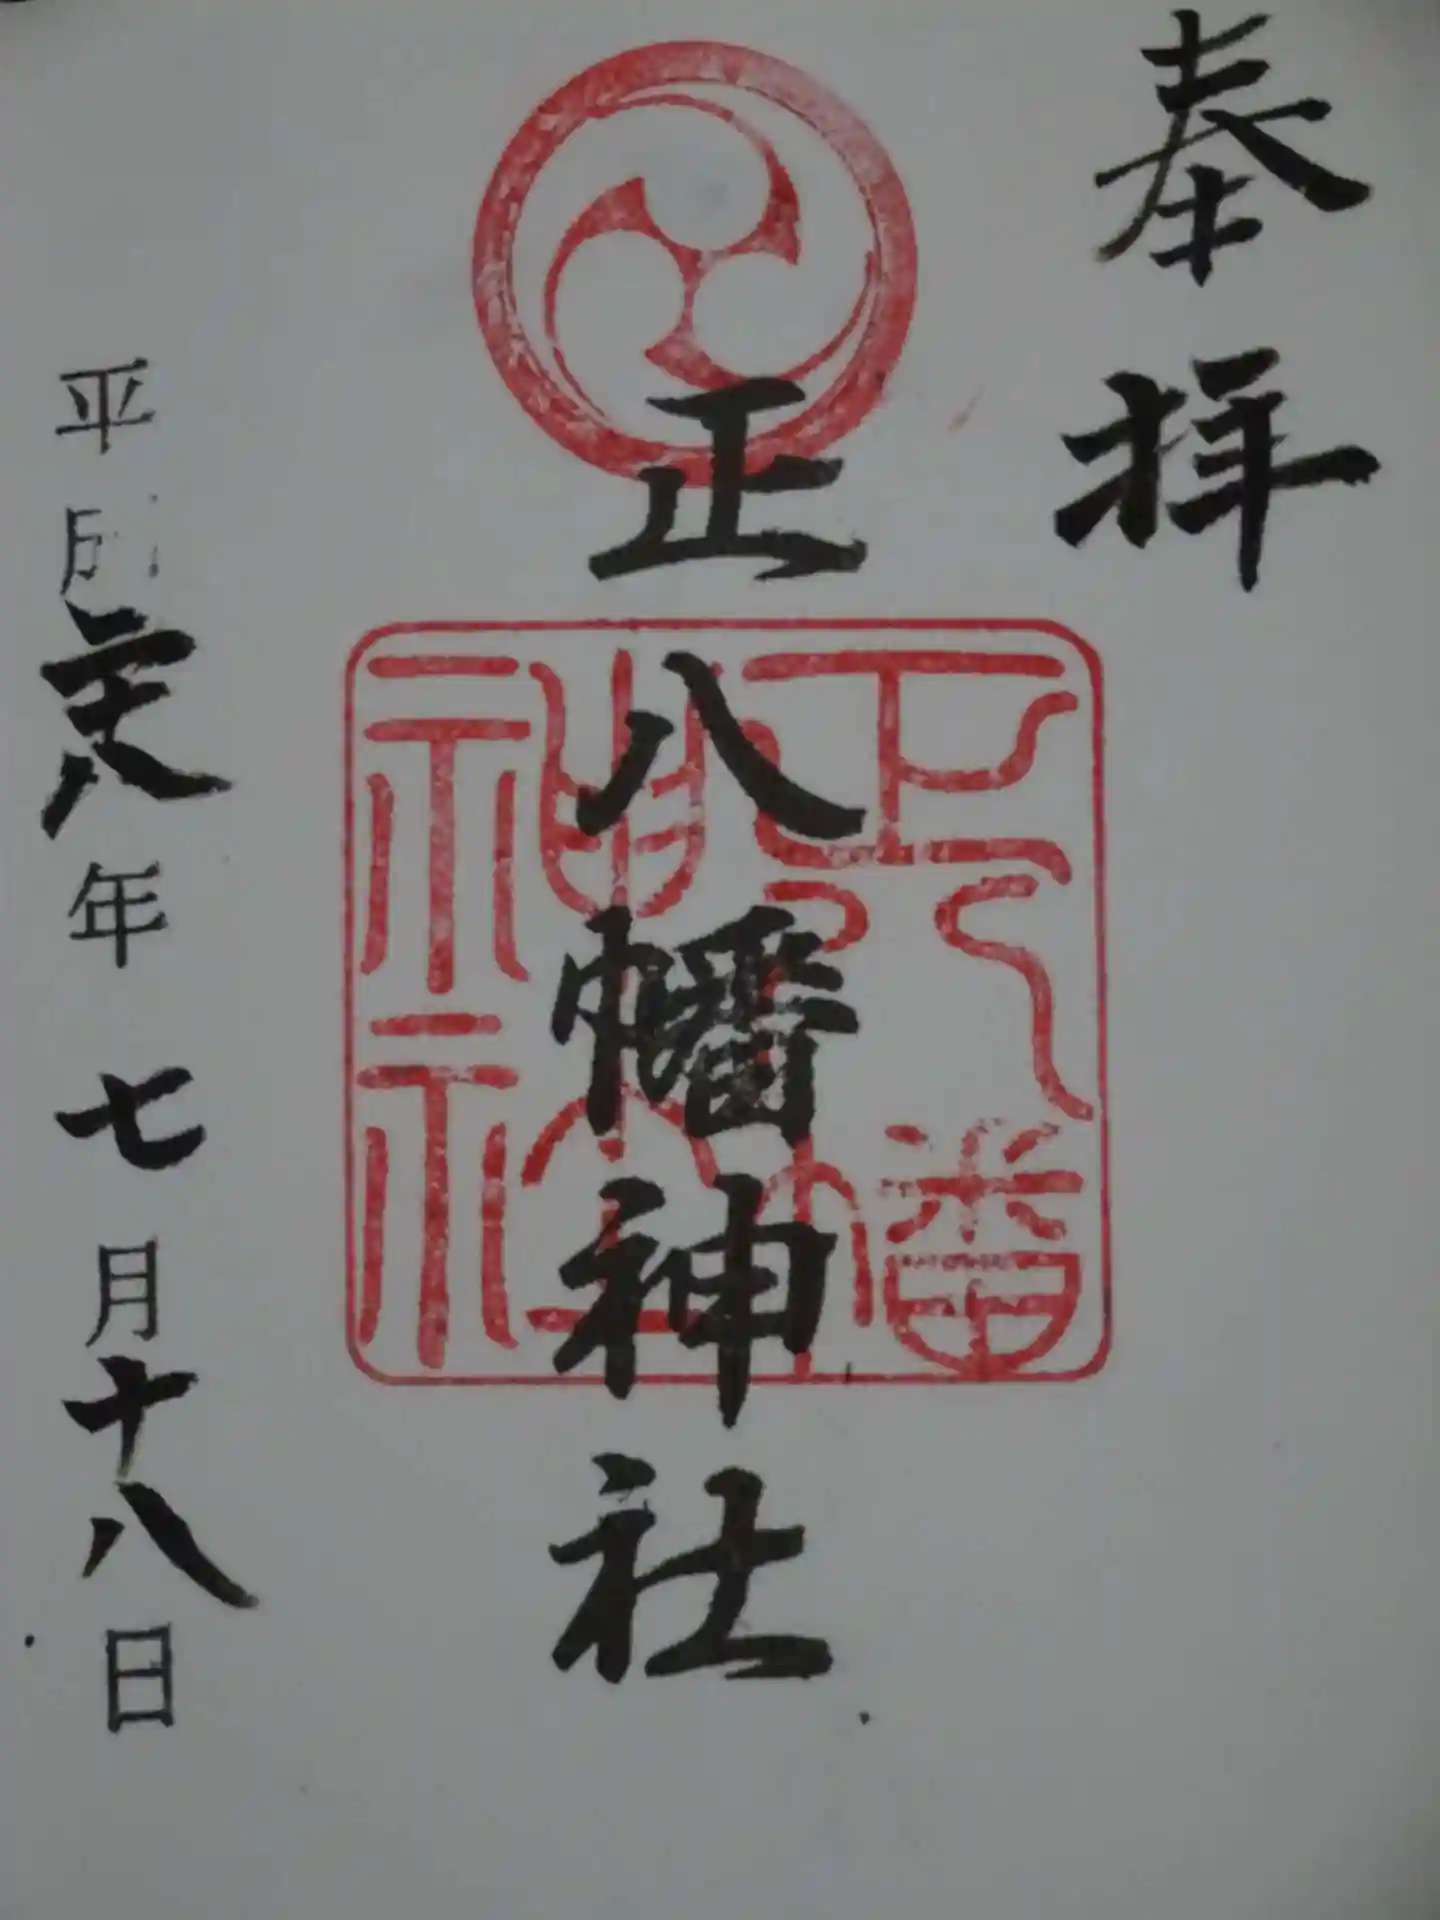 奉拝
正八幡神社
平成二十八年 七月十八日
正八幡
神社